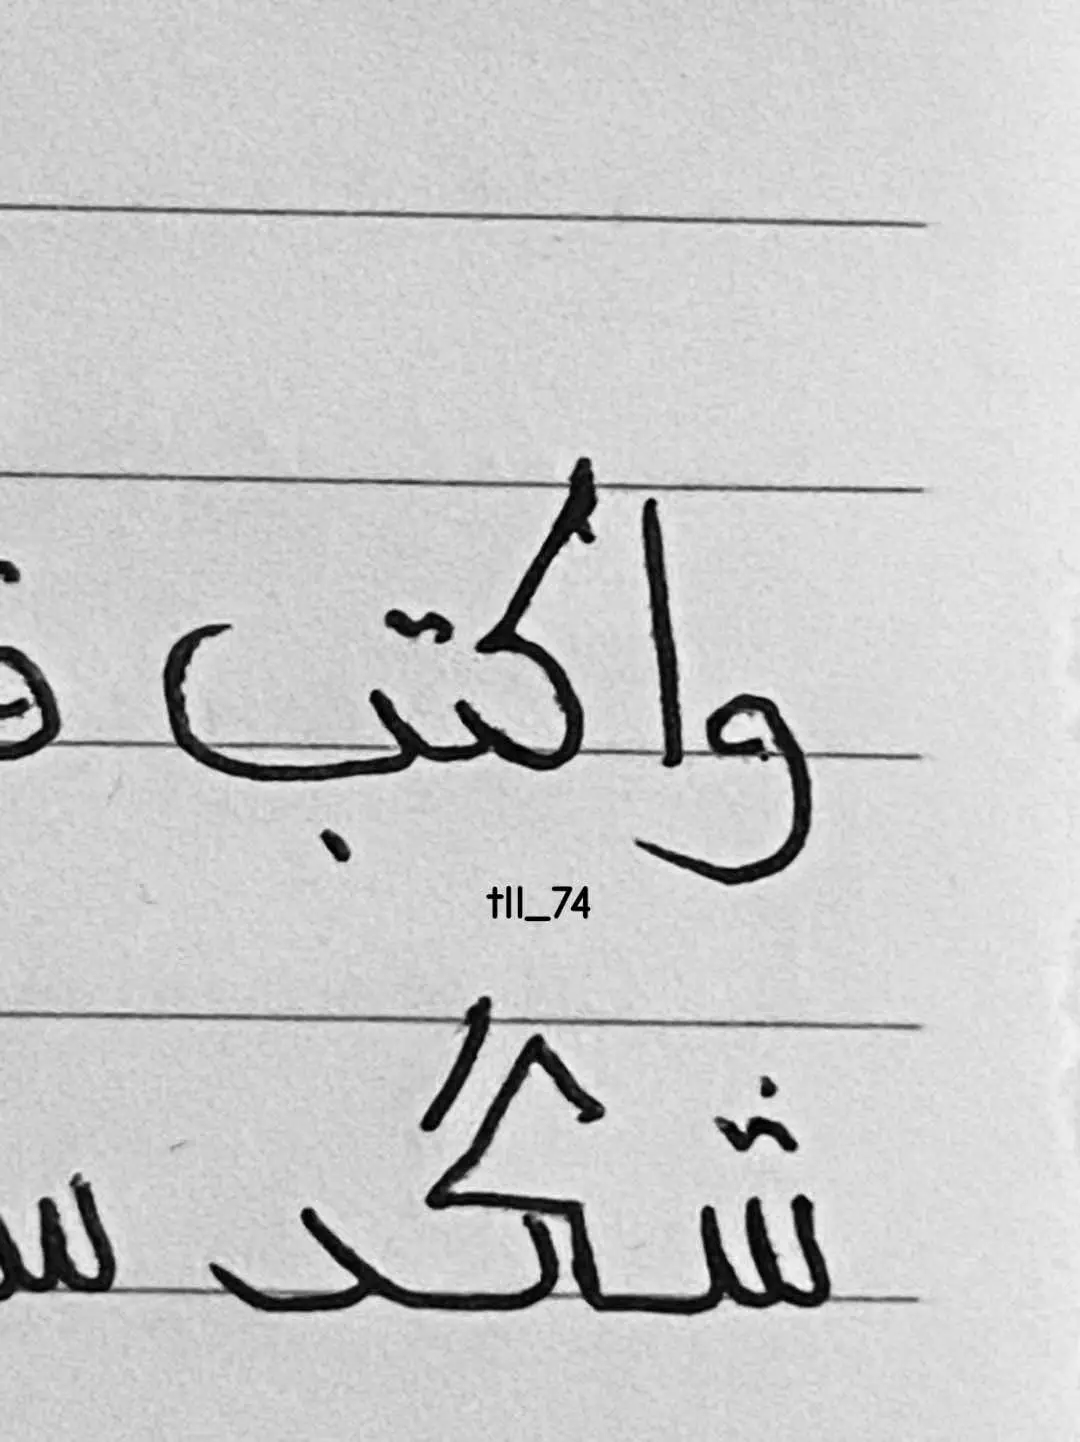 واكتب
tll_74
شگد